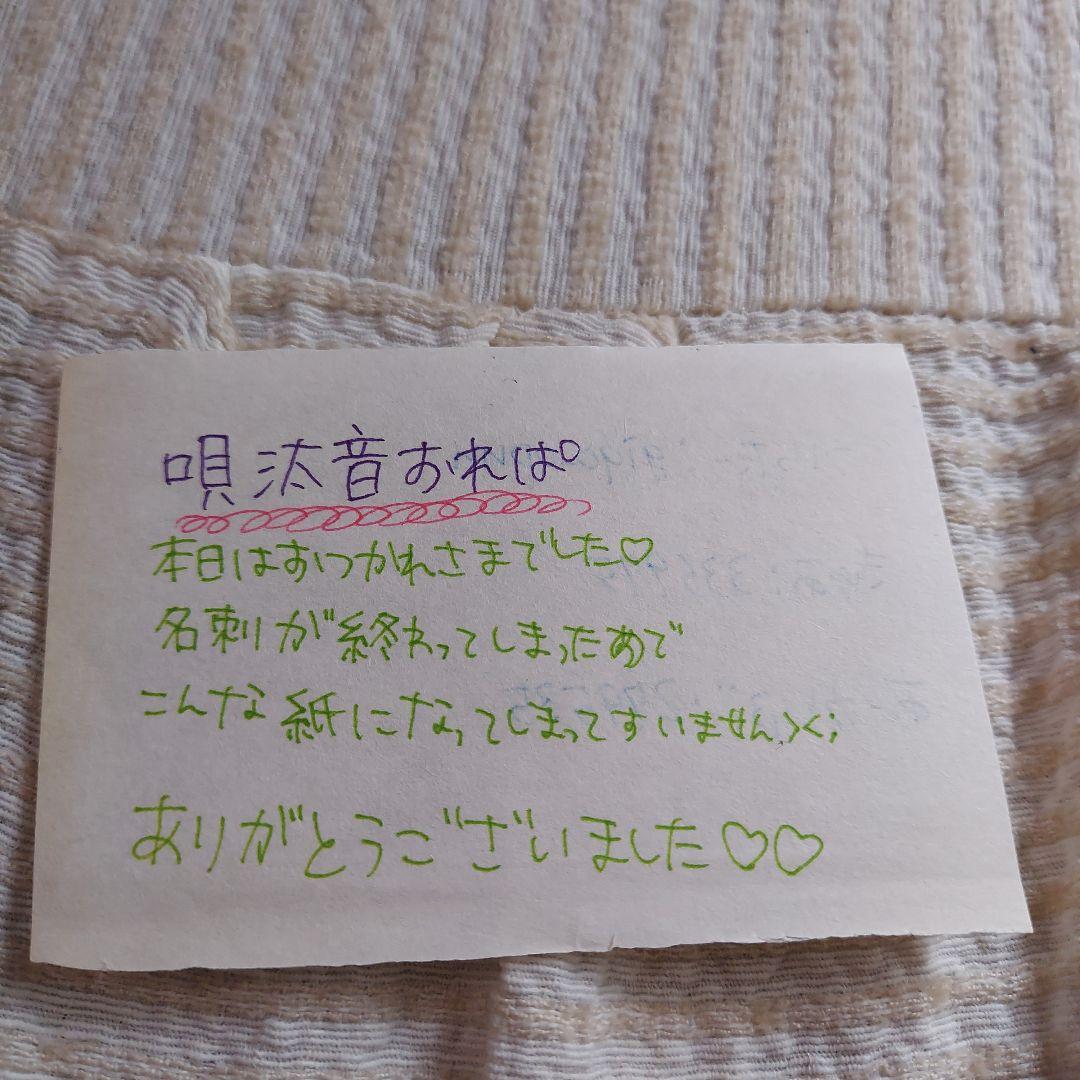 唄汰音おれぱ
本日はおつかれさまでした♡
名刺が終わってしまったあで
こんな紙になってしまってすいません><;
ありがとうございました♡♡